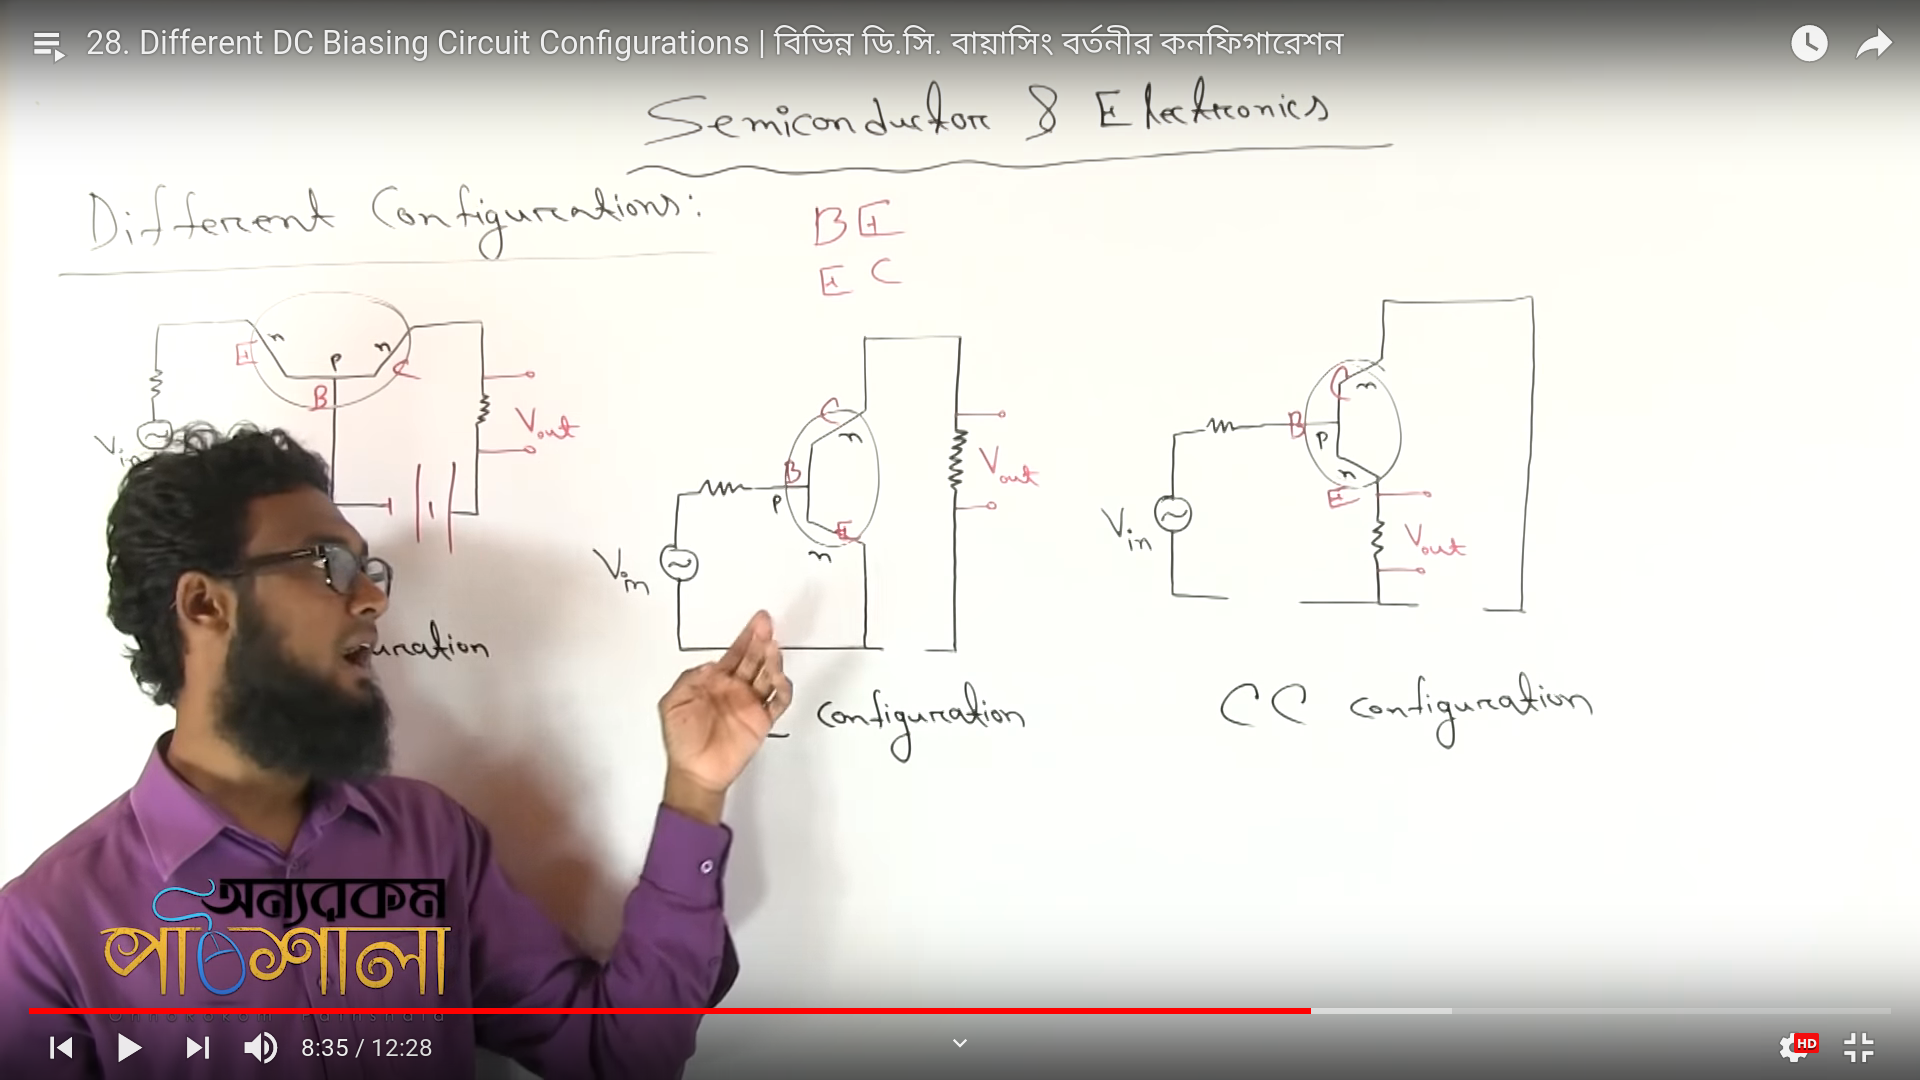 28. Different DC Biasing Circuit Configurations | বিভিন্ন ডি.সি. বায়াসিং বর্তনীর কনফিগারেশন
Semiconductor & Electronics
Different Configurations:
BE
EC
n p n
E B C
Vin
Vout
C n
B p
E n
Vin
Vout
C n
B p
n E
Vin
Vout
configuration
CC configuration
অন্যরকম
পাঠশালা
Onnorokom Pathshala
8:35 / 12:28
HD